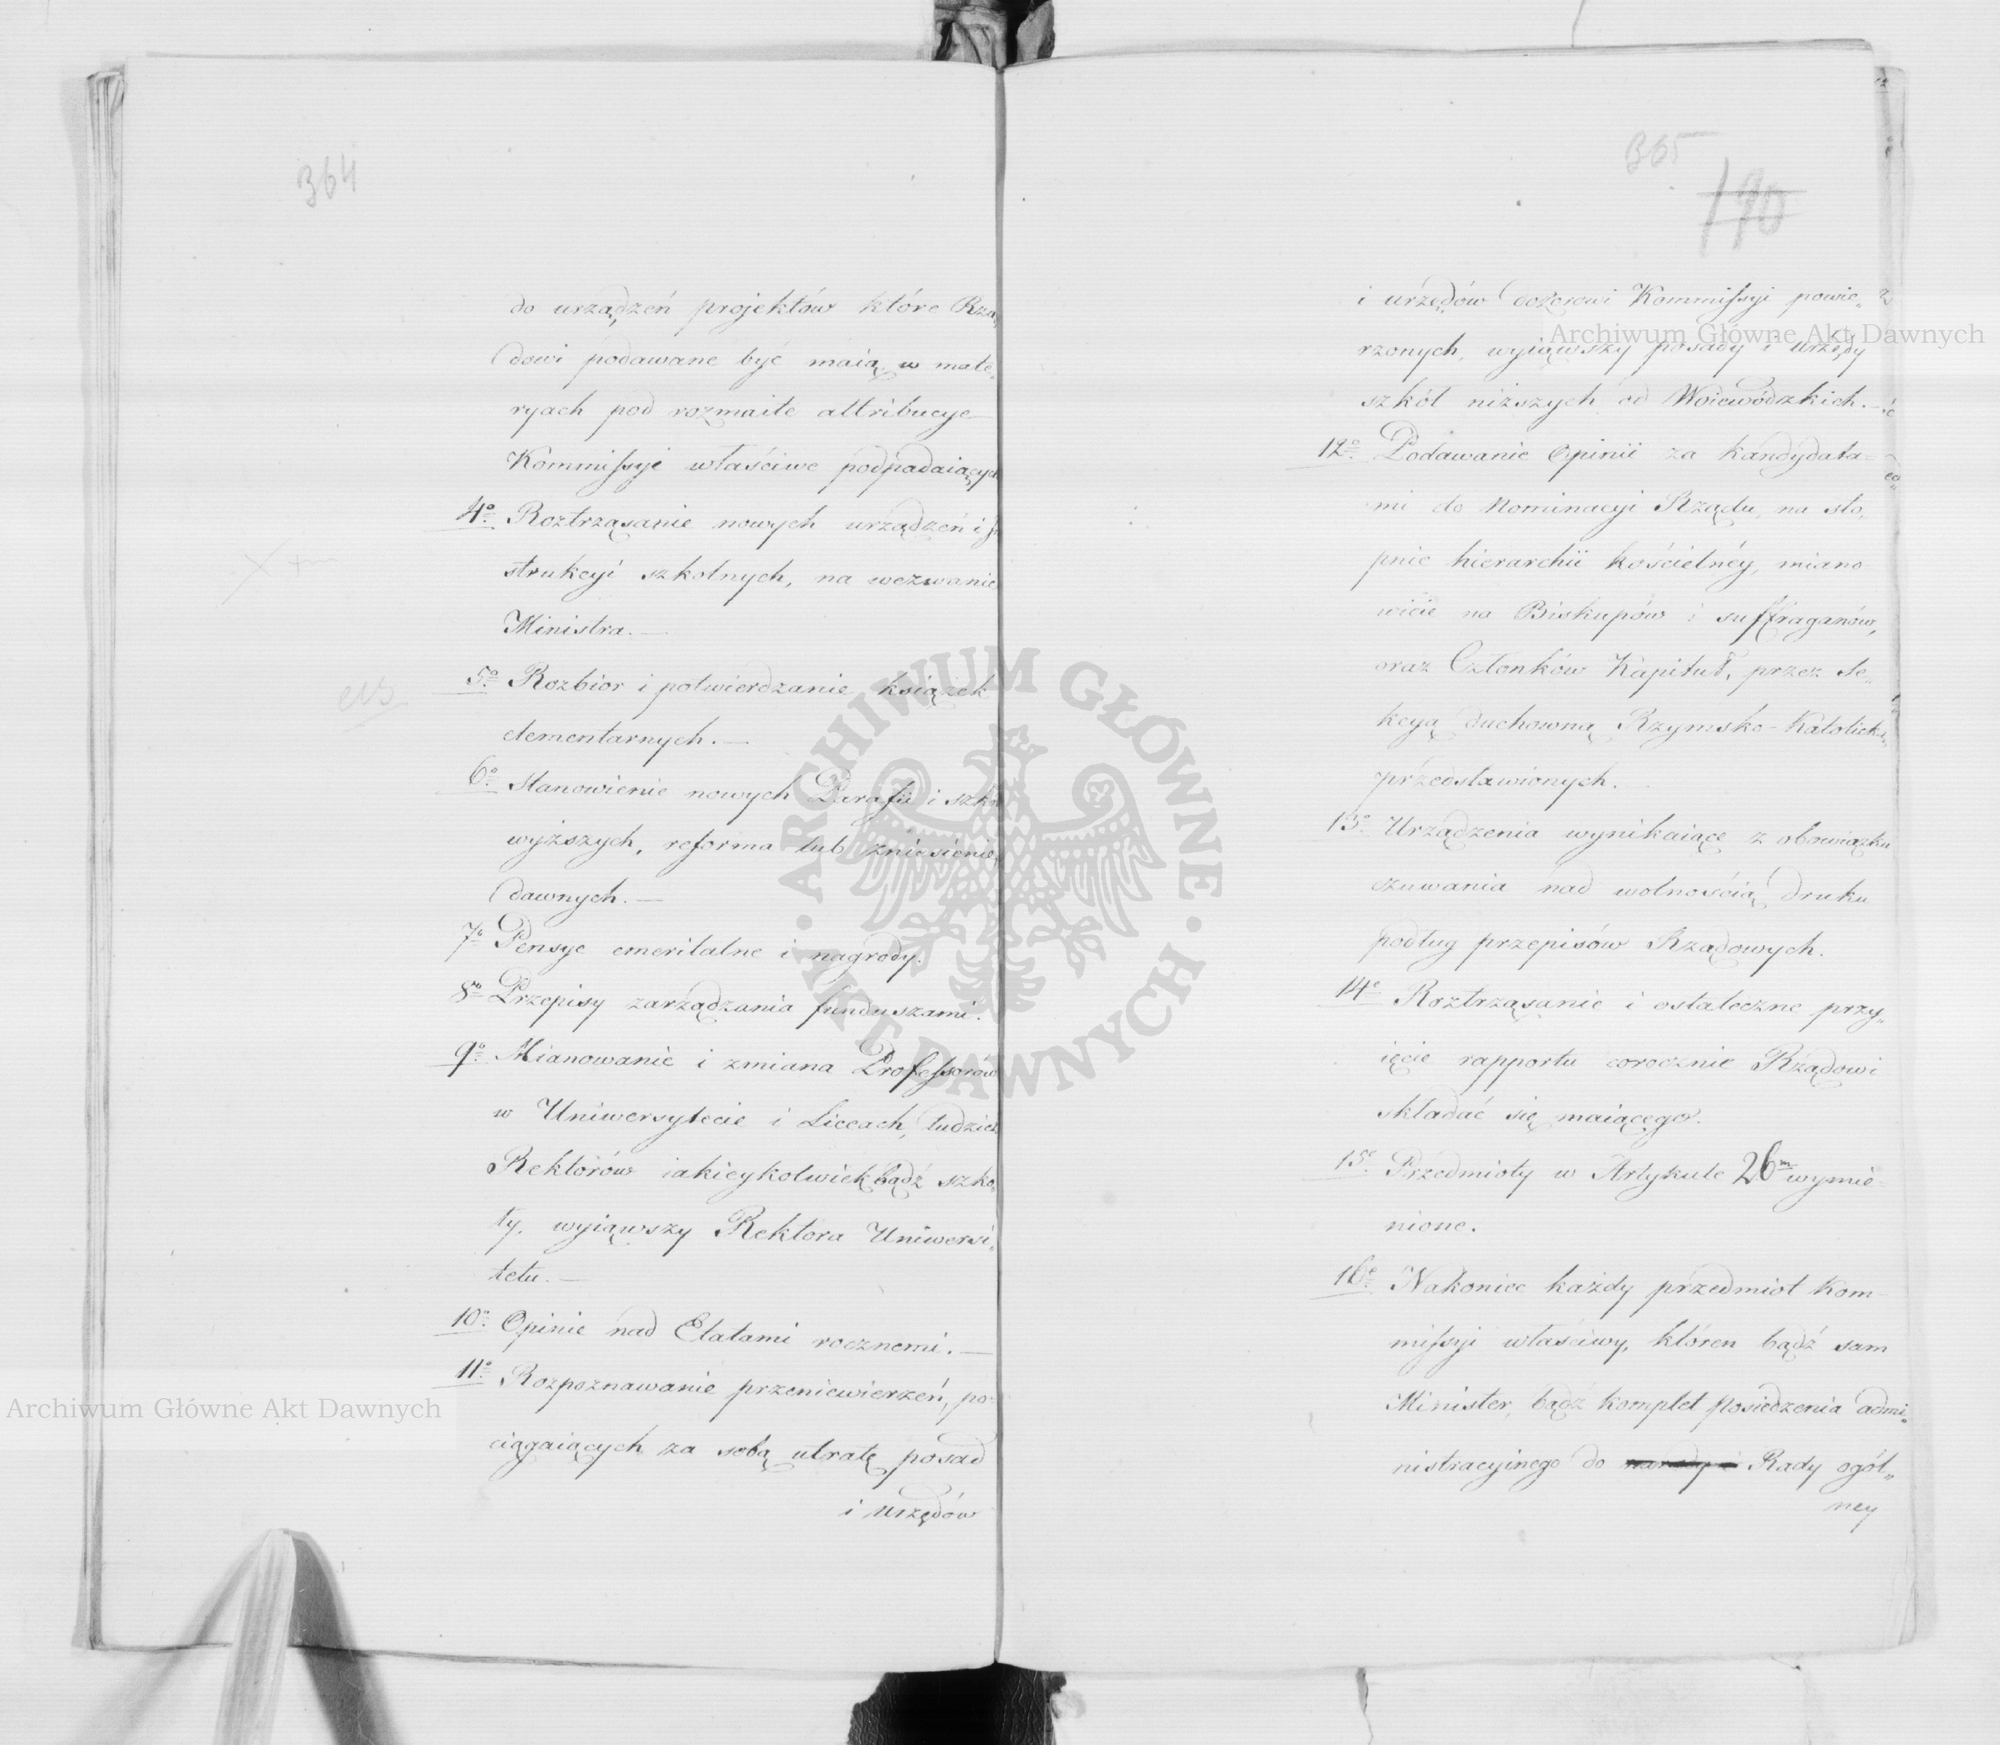 364
do urządzeń projektów które Rzą
dowi podawane być maią w mate„
ryach pod rozmaite attribucye
Kommissyi właściwe podpadaiących
4o. Roztrząsanie nowych urządzeń i In
strukcyi szkolnych, na wezwanie
Ministra.—
5o. Rozbior i potwierdzanie książek
elementarnych.—
6o. Stanowienie nowych Parafii i szkół
wyższych, reforma lub zniesienie
dawnych.—
7o Pensye emeritalne i nagrody.
8o Przepisy zarządzania funduszami.
9o. Mianowanie i zmiana Professorów
w Uniwersytecie i Liceach, tudzież
Rektorów iakieykolwiek bądź szko„
ły, wyiąwszy Rektora Uniwersi„
tetu.—
10o. Opinie nad Etatami rocznemi.—
11o. Rozpoznawanie przeniewierzeń, po„
ciągaiących za sobą utratę posad
i urzędów
365
190
i urzędów dozorowi Kommissyi powie„
rzonych, wyiąwszy posady i urzędy
szkół niższych od Woiewódzkich.—
12o. Podawanie Opinii za kandydata=
mi do Nominacyi Rządu, na sto„
pnie hierarchii kościelnéy, miano
wicie na Biskupów i suffraganów,
oraz Członków Kapituł, przez Se„
kcyą duchowną Rzymsko-Katolicką
przedstawionych.
13o Urządzenia wynikaiące z obowiązku
czuwania nad wolnością druku
podług przepisów Rządowych.
14o Roztrząsanie i ostateczne przy„
ięcie rapportu corocznie Rządowi
składać się maiącego.
15o. Przedmioty w Artykule 26m wymie=
nione.
16o. Nakoniec każdy przedmiot Kom
missyi właściwy, któren bądź sam
Minister, bądź komplet posiedzenia admi„
nistracyinego do Rady ogól„
ney
Archiwum Główne Akt Dawnych
Archiwum Główne Akt Dawnych
ARCHIWUM GŁÓWNE AKT DAWNYCH